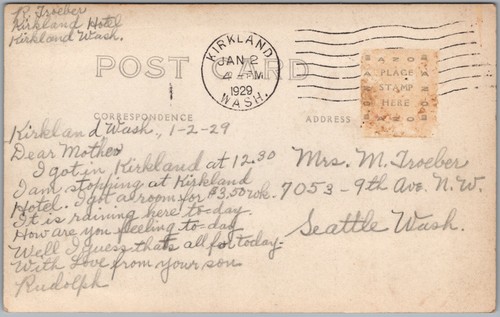 R. Troeber
Kirkland Hotel
Kirkland Wash.
KIRKLAND
JAN 2
4 - PM
1929
WASH.
POST CARD
PLACE
STAMP
HERE
CORRESPONDENCE
ADDRESS
Kirkland Wash., 1-2-29
Dear Mother
I got in, Kirkland at 12.30
I am stopping at Kirkland
Hotel. I got a room for $3.50 wk.
It is raining here to-day
How are you feeling to-day
Well I guess thats all for today-
With Love from your son
Rudolph
Mrs. M. Troeber
7053 - 9th Ave. N.W.
Seattle Wash.